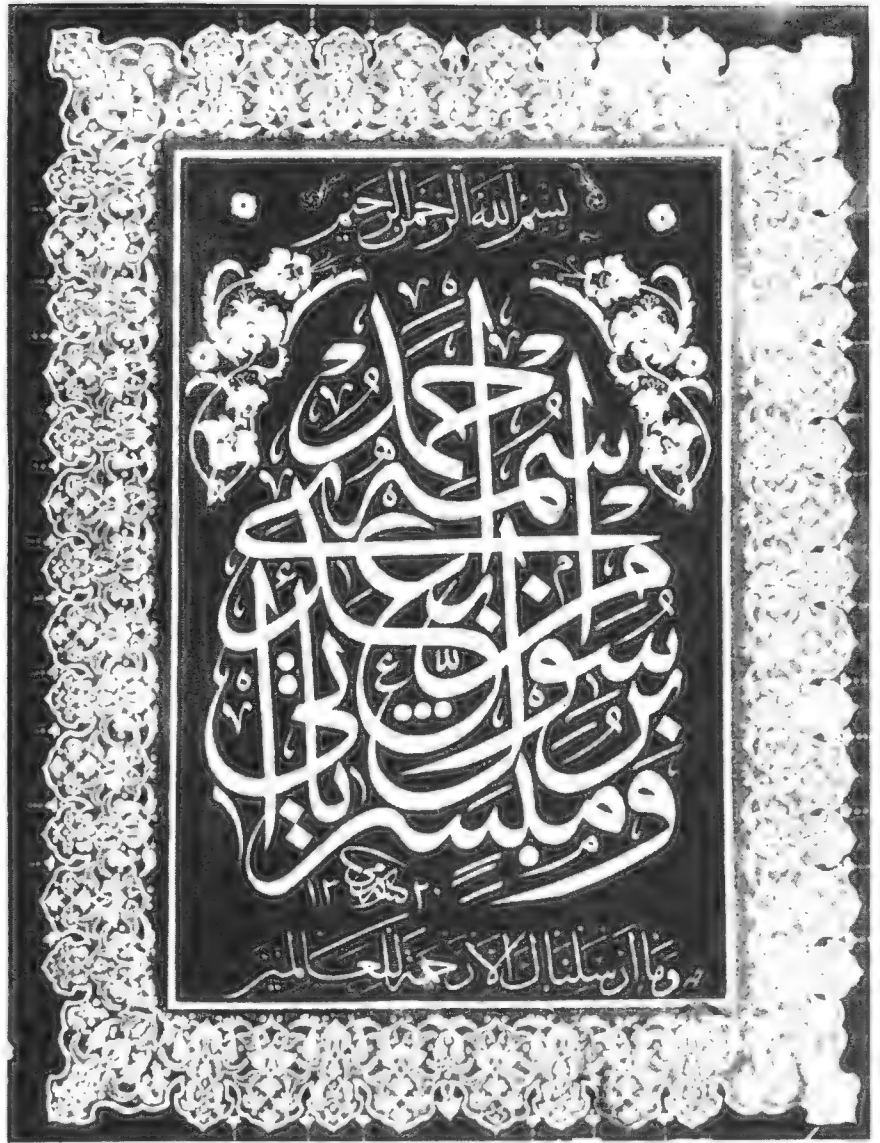 بسم الله الرحمن الرحيم
ومبشرا برسول يأتي من بعدي اسمه أحمد
١٣٢٠
وما أرسلناك إلا رحمة للعالمين